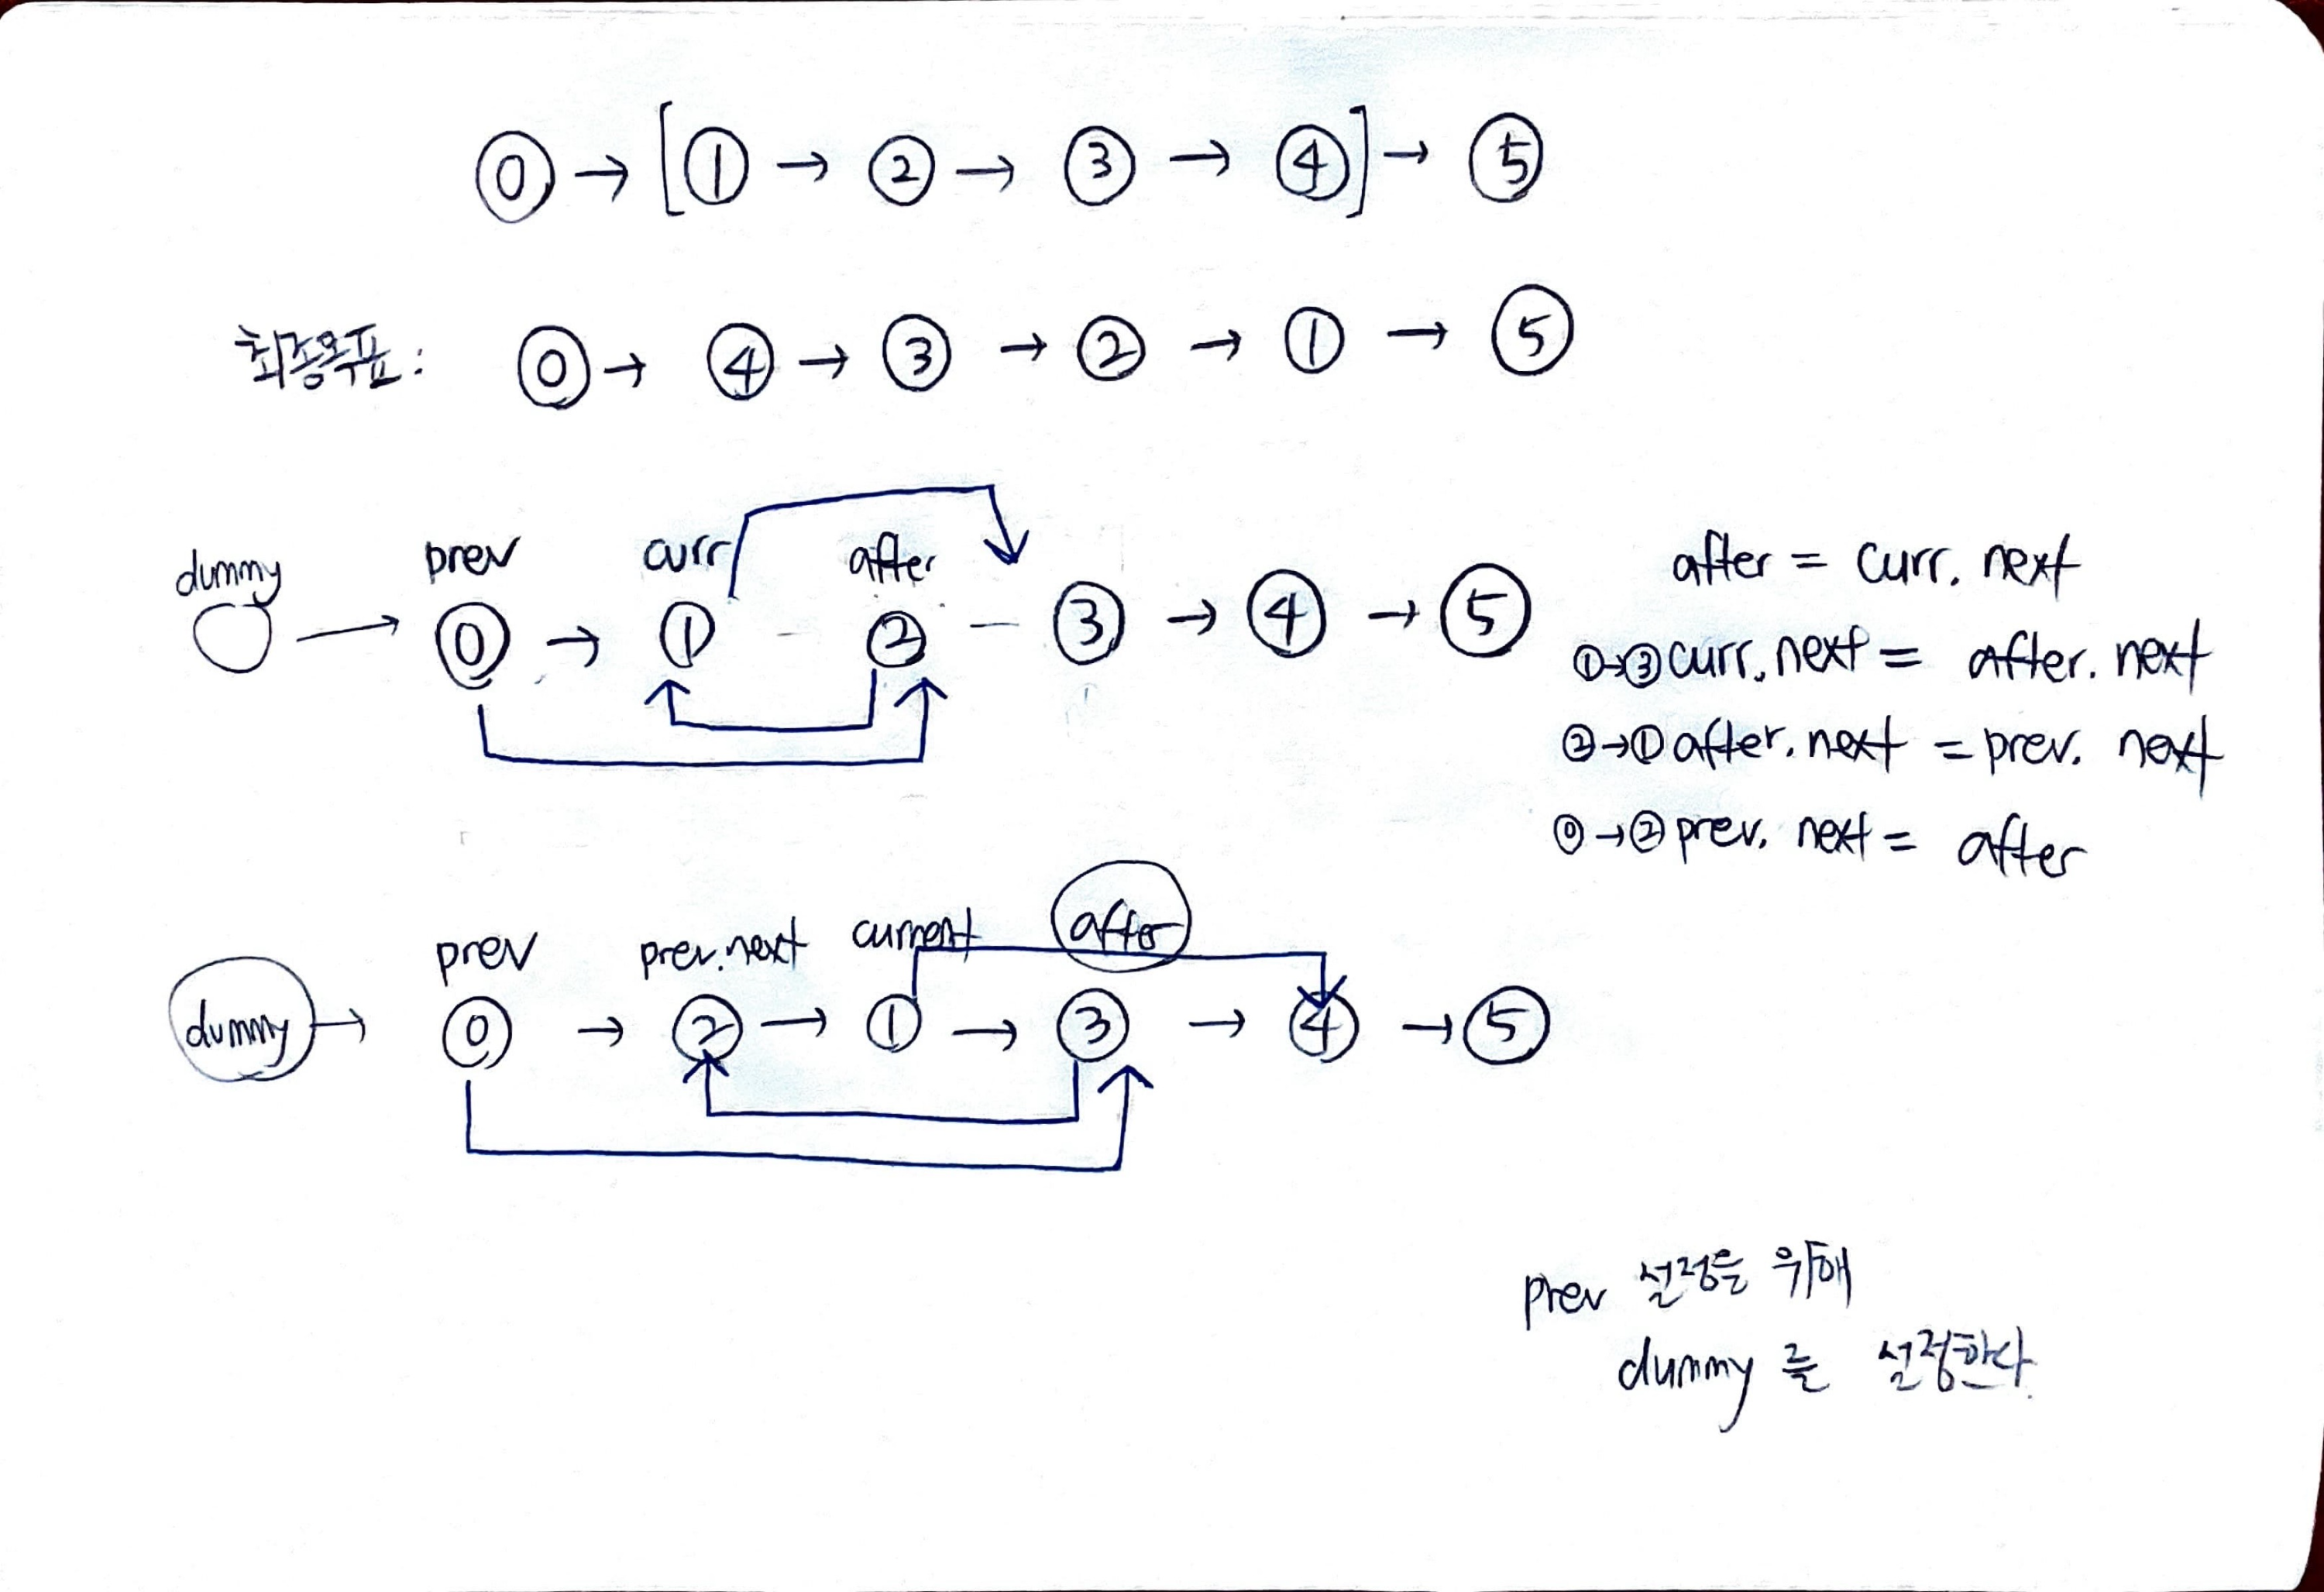 ⓪ → [① → ② → ③ → ④] → ⑤
최종목표 : ⓪ → ④ → ③ → ② → ① → ⑤
dummy prev curr after
⓪ → ① - ② - ③ → ④ → ⑤
after = curr. next
①→③ curr. next = after. next
②→① after. next = prev. next
⓪→② prev. next = after
prev prev.next current after
dummy → ⓪ → ② → ① → ③ → ④ → ⑤
prev 설정을 위해
dummy 를 설정한다.